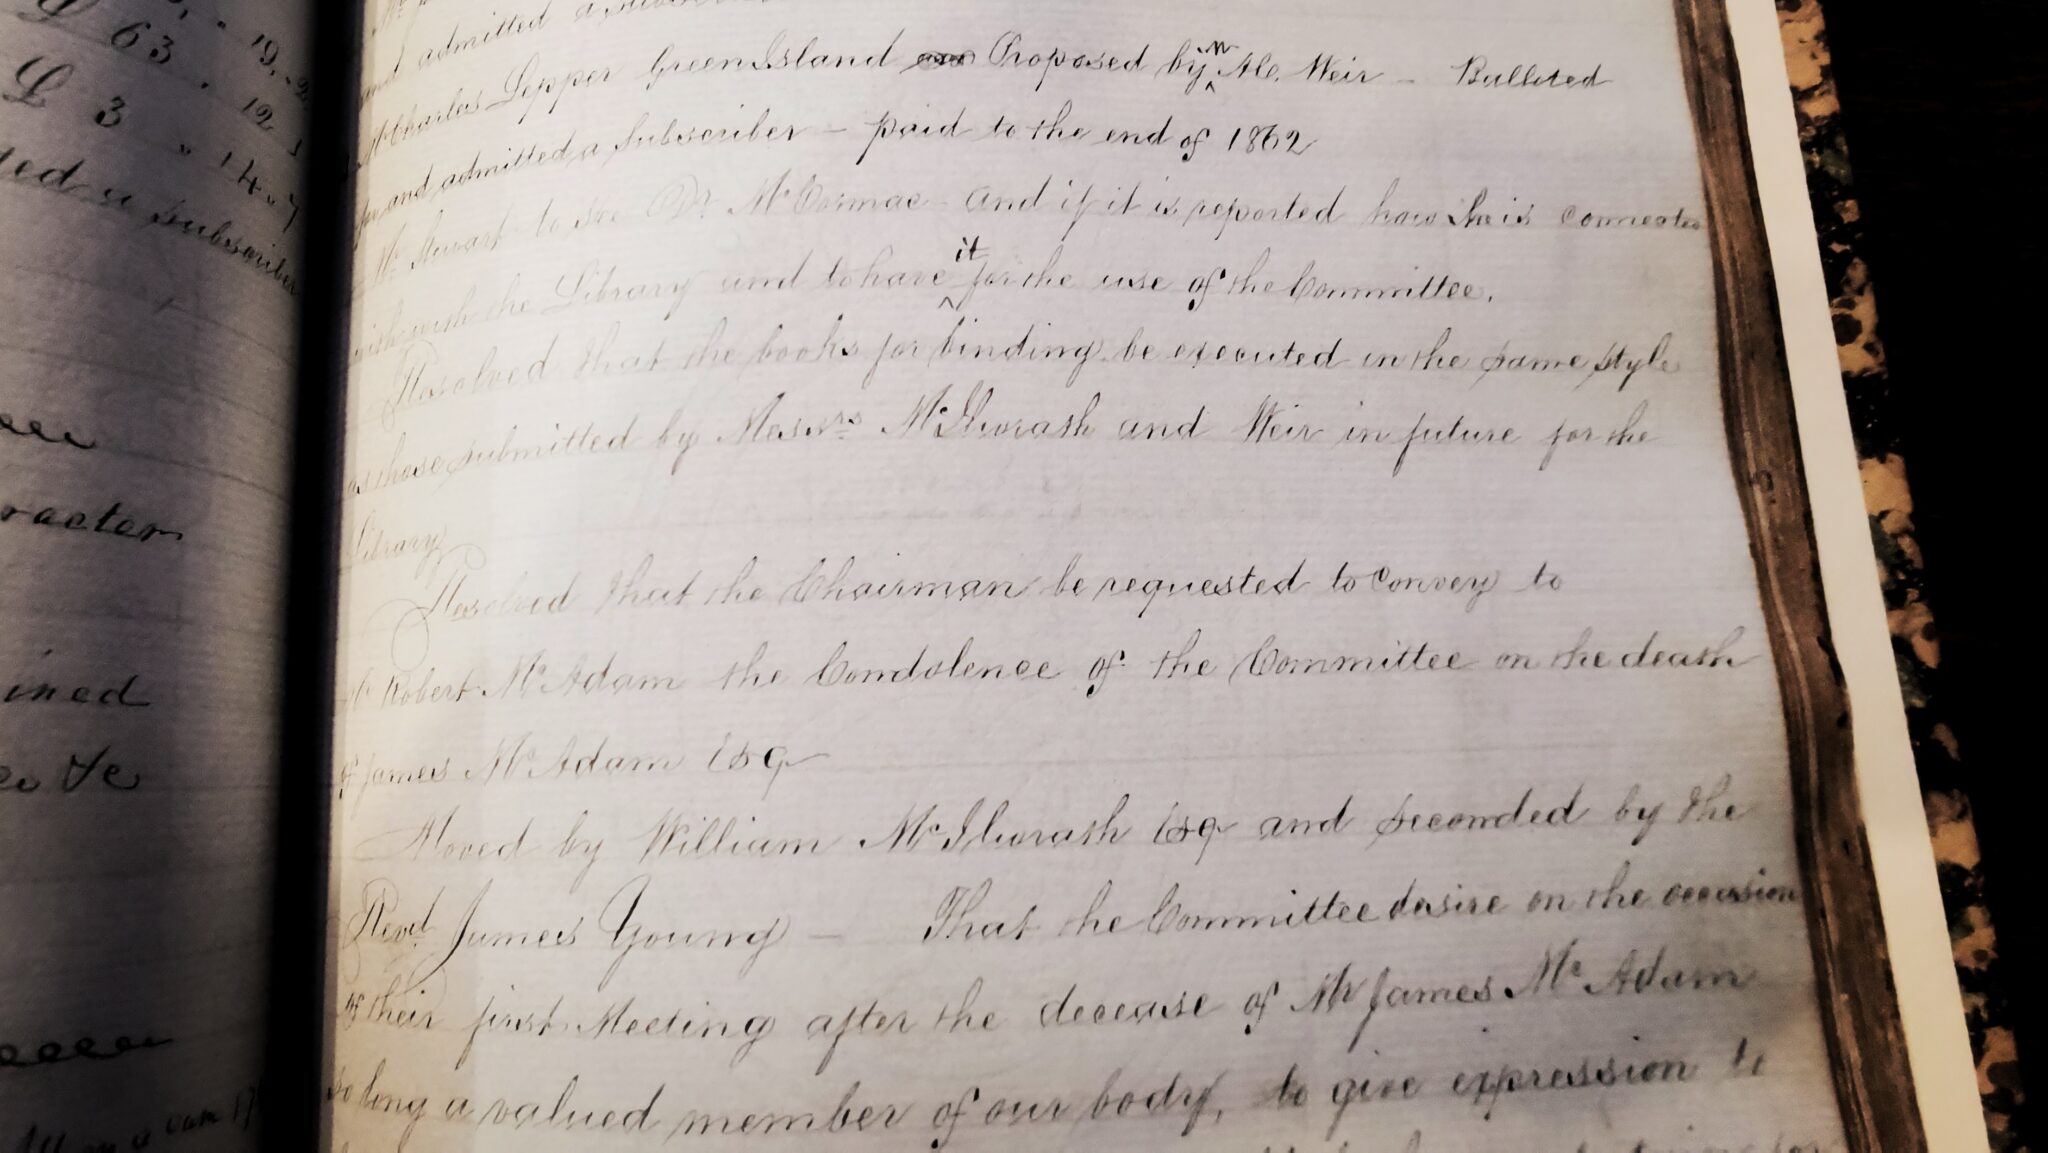 19
63 . 12
L 3 " 14 . 7
subscriber
racter
ined
and admitted a
Mr Charles Lepper Green Island Proposed by Mr Alc. Weir – Balloted
for and admitted a Subscriber – paid to the end of 1862
Mr Stewart to see Dr McCormac – and if it is reported how she is connected
with the Library and to have it for the use of the Committee.
Resolved that the books for binding be executed in the same style
as those submitted by Messrs McIlwrath and Weir in future for the
Library
Resolved that the Chairman be requested to convey to
Mr Robert McAdam the Condolence of the Committee on the death
of James McAdam Esq
Moved by William McIlwrath Esq and seconded by the
Revd James Young – That the Committee desire on the occasion
of their first Meeting after the decease of Mr James McAdam
so long a valued member of our body, to give expression to